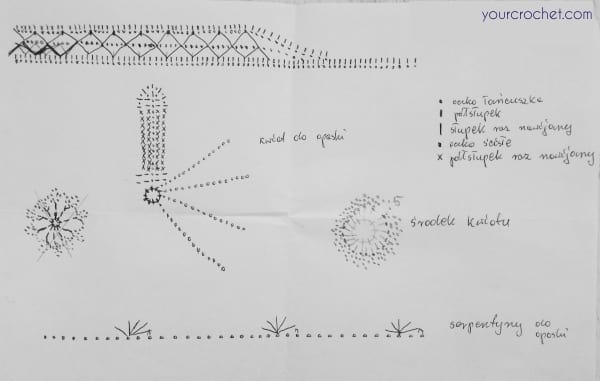 yourcrochet.com
oczko łańcuszka
półsłupek
słupek raz nawijany
oczko ścisłe
półsłupek raz nawijany
kwiat do opaski
5
środek kwiatu
serpentyny do
opaski